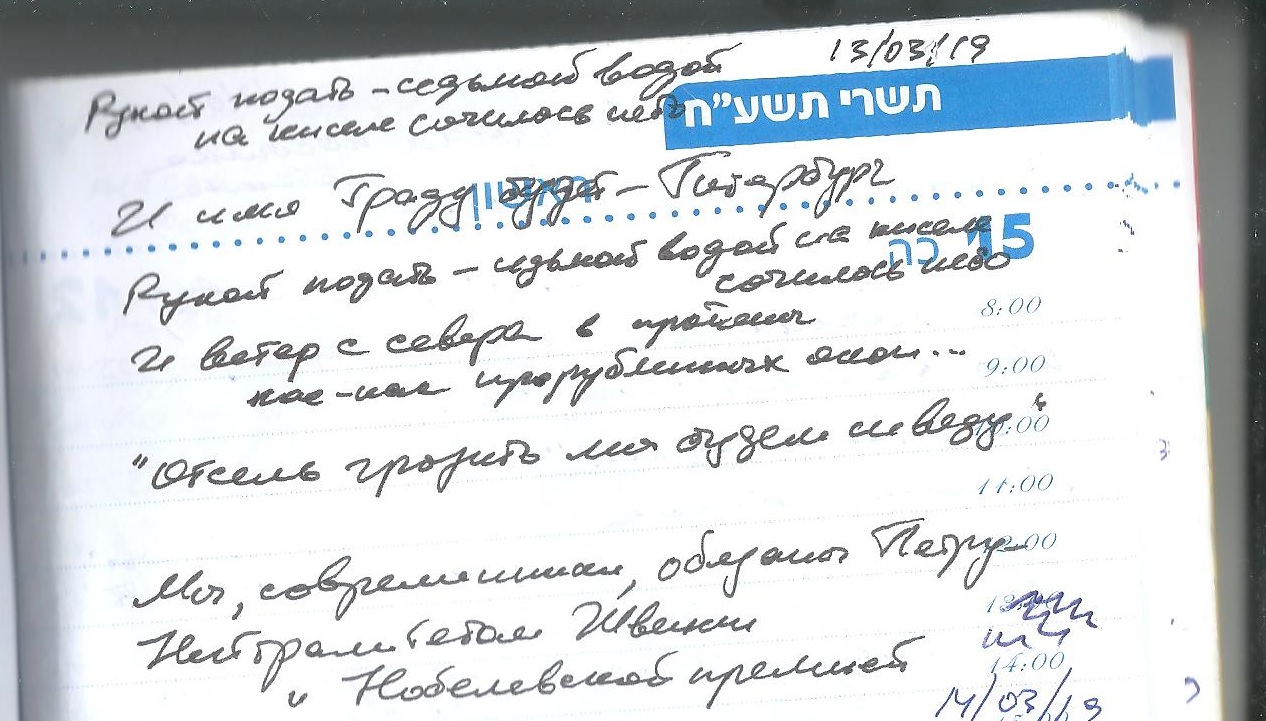 13/03/19
Рукой подать – седьмой водой
תשרי תשע"ח
на киселе сочилось небо
ראשון
И имя Граду будет – Питербург
15 כה
Рукой подать – седьмой водой на киселе
сочилось небо
8:00
И ветер с севера в
кое-как прорубленных окон...
9:00
"Отсель грозить мы будем шведу"
10:00
11:00
Мы, современники, обязаны Петру
12:00
Нейтралитетом Швеции
и Нобелевской премией
14:00
14/03/19